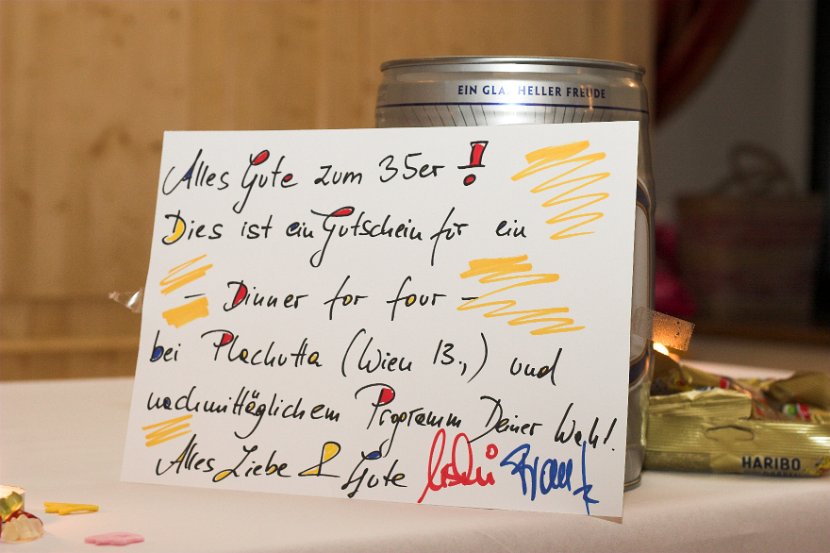 EIN GLAS HELLER FREUDE
Alles Gute zum 35er !
Dies ist ein Gutschein für ein
- Dinner for four -
bei Plachutta (Wien 13.,) und
nachmittäglichem Programm Deiner Wahl!
Alles Liebe & Gute
HARIBO